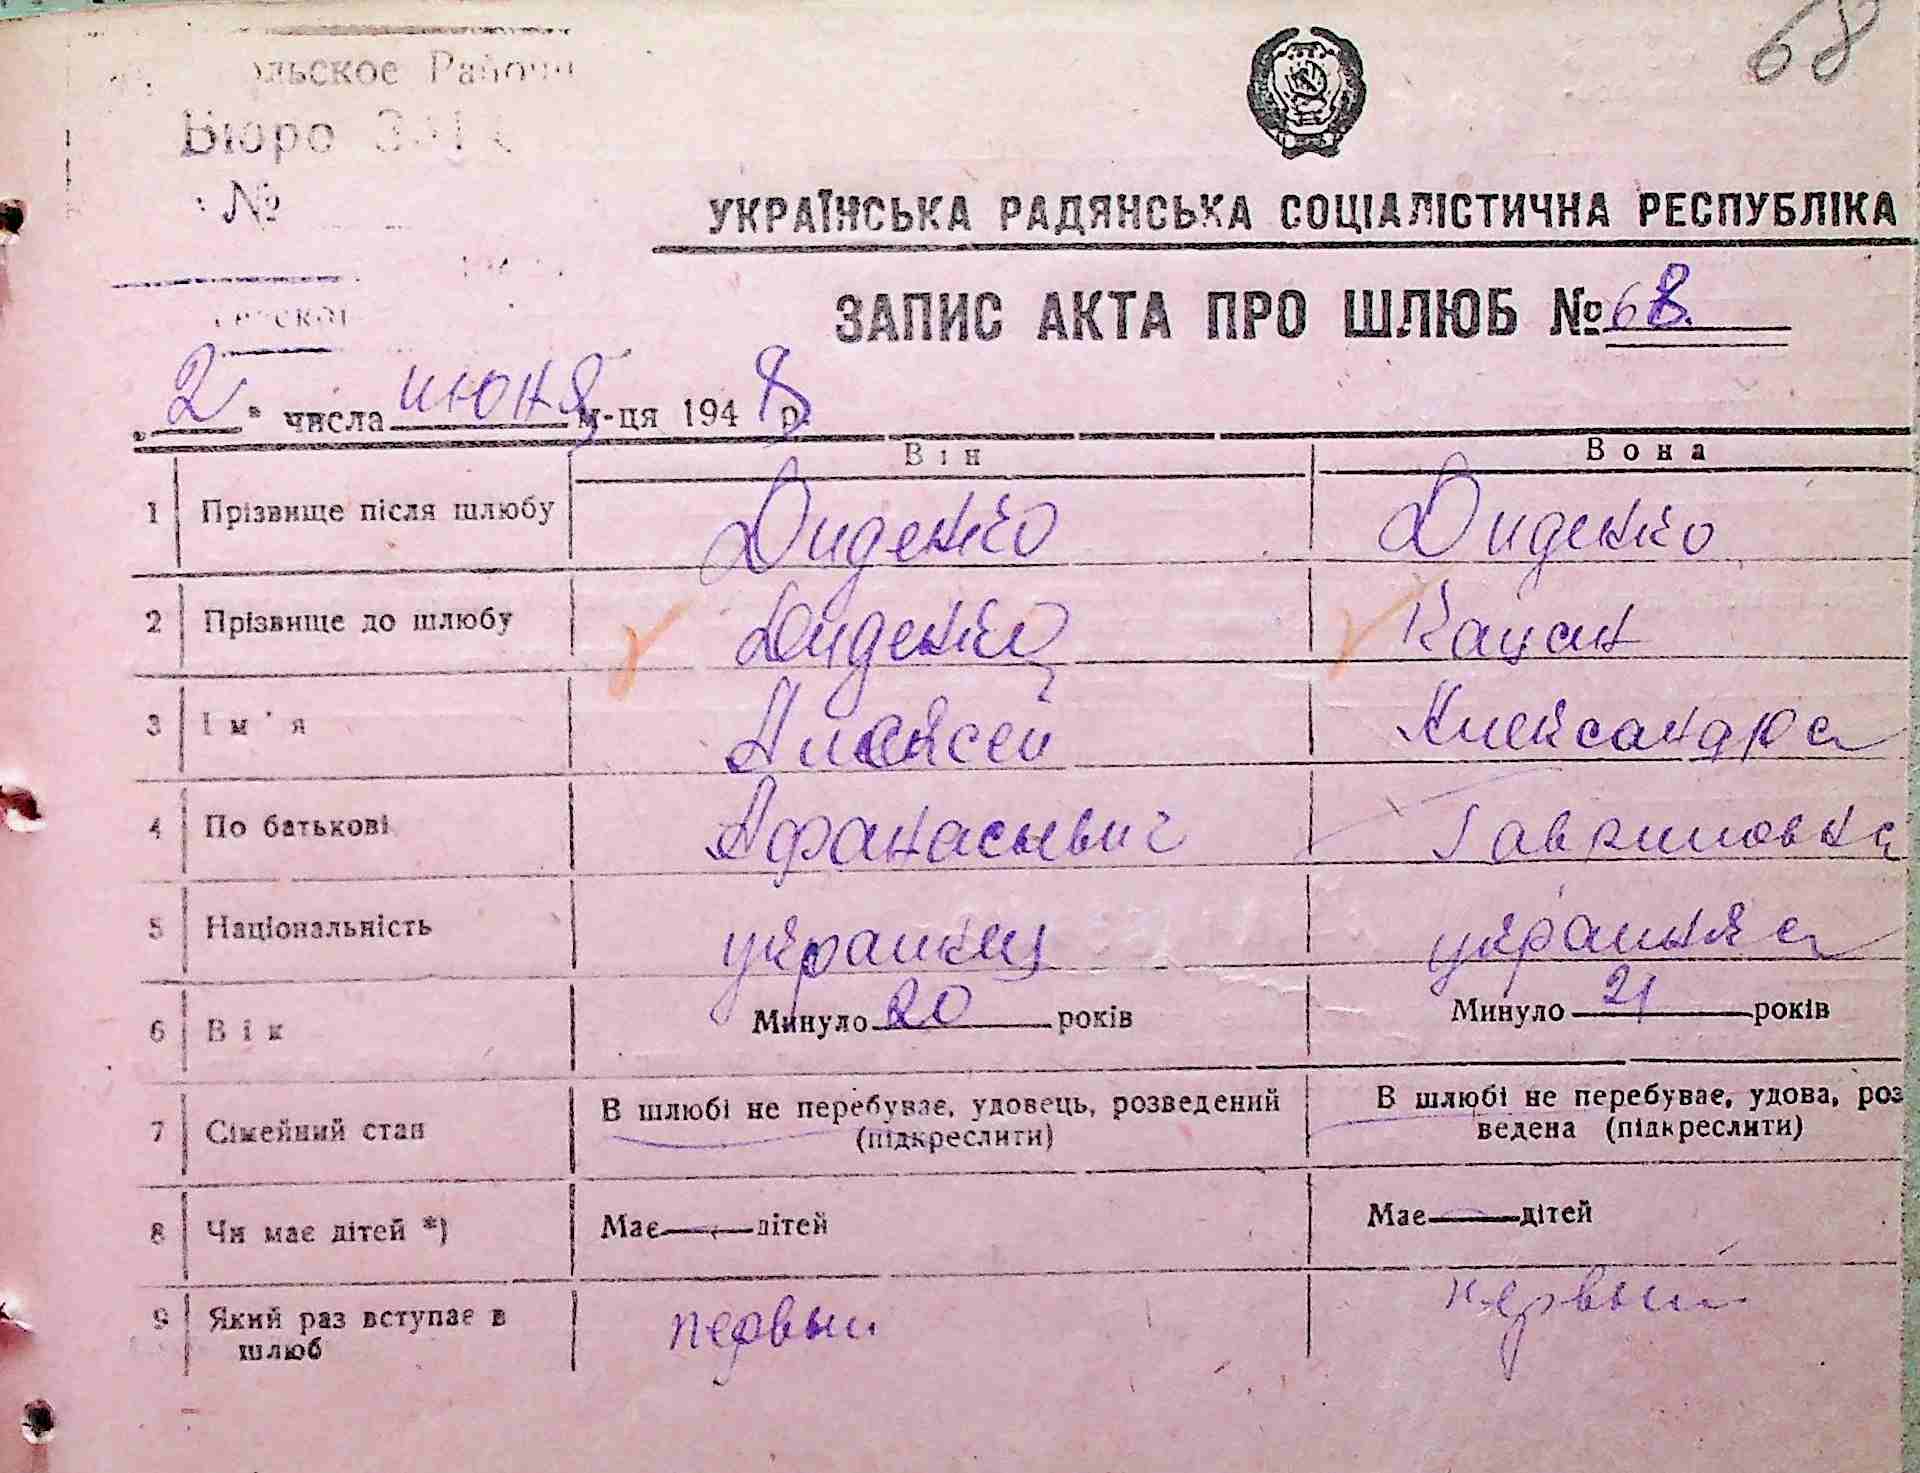 68
Бюро
№
УКРАЇНСЬКА РАДЯНСЬКА СОЦІАЛІСТИЧНА РЕСПУБЛІКА
ЗАПИС АКТА ПРО ШЛЮБ № 68.
„2" числа июня м-ця 1948 р.
Він Вона
1 Прізвище після шлюбу Диденко Диденко
2 Прізвище до шлюбу Диденко Кацан
3 Ім'я Алексей Александра
4 По батькові Афанасьевич Гавриловна
5 Національність украинец украинка
6 Вік Минуло 20 років Минуло 21 років
7 Сімейний стан В шлюбі не перебуває, удовець, розведений В шлюбі не перебуває, удова, роз
(підкреслити) ведена (підкреслити)
8 Чи має дітей *) Має — дітей Має — дітей
9 Який раз вступає в первый первый
шлюб